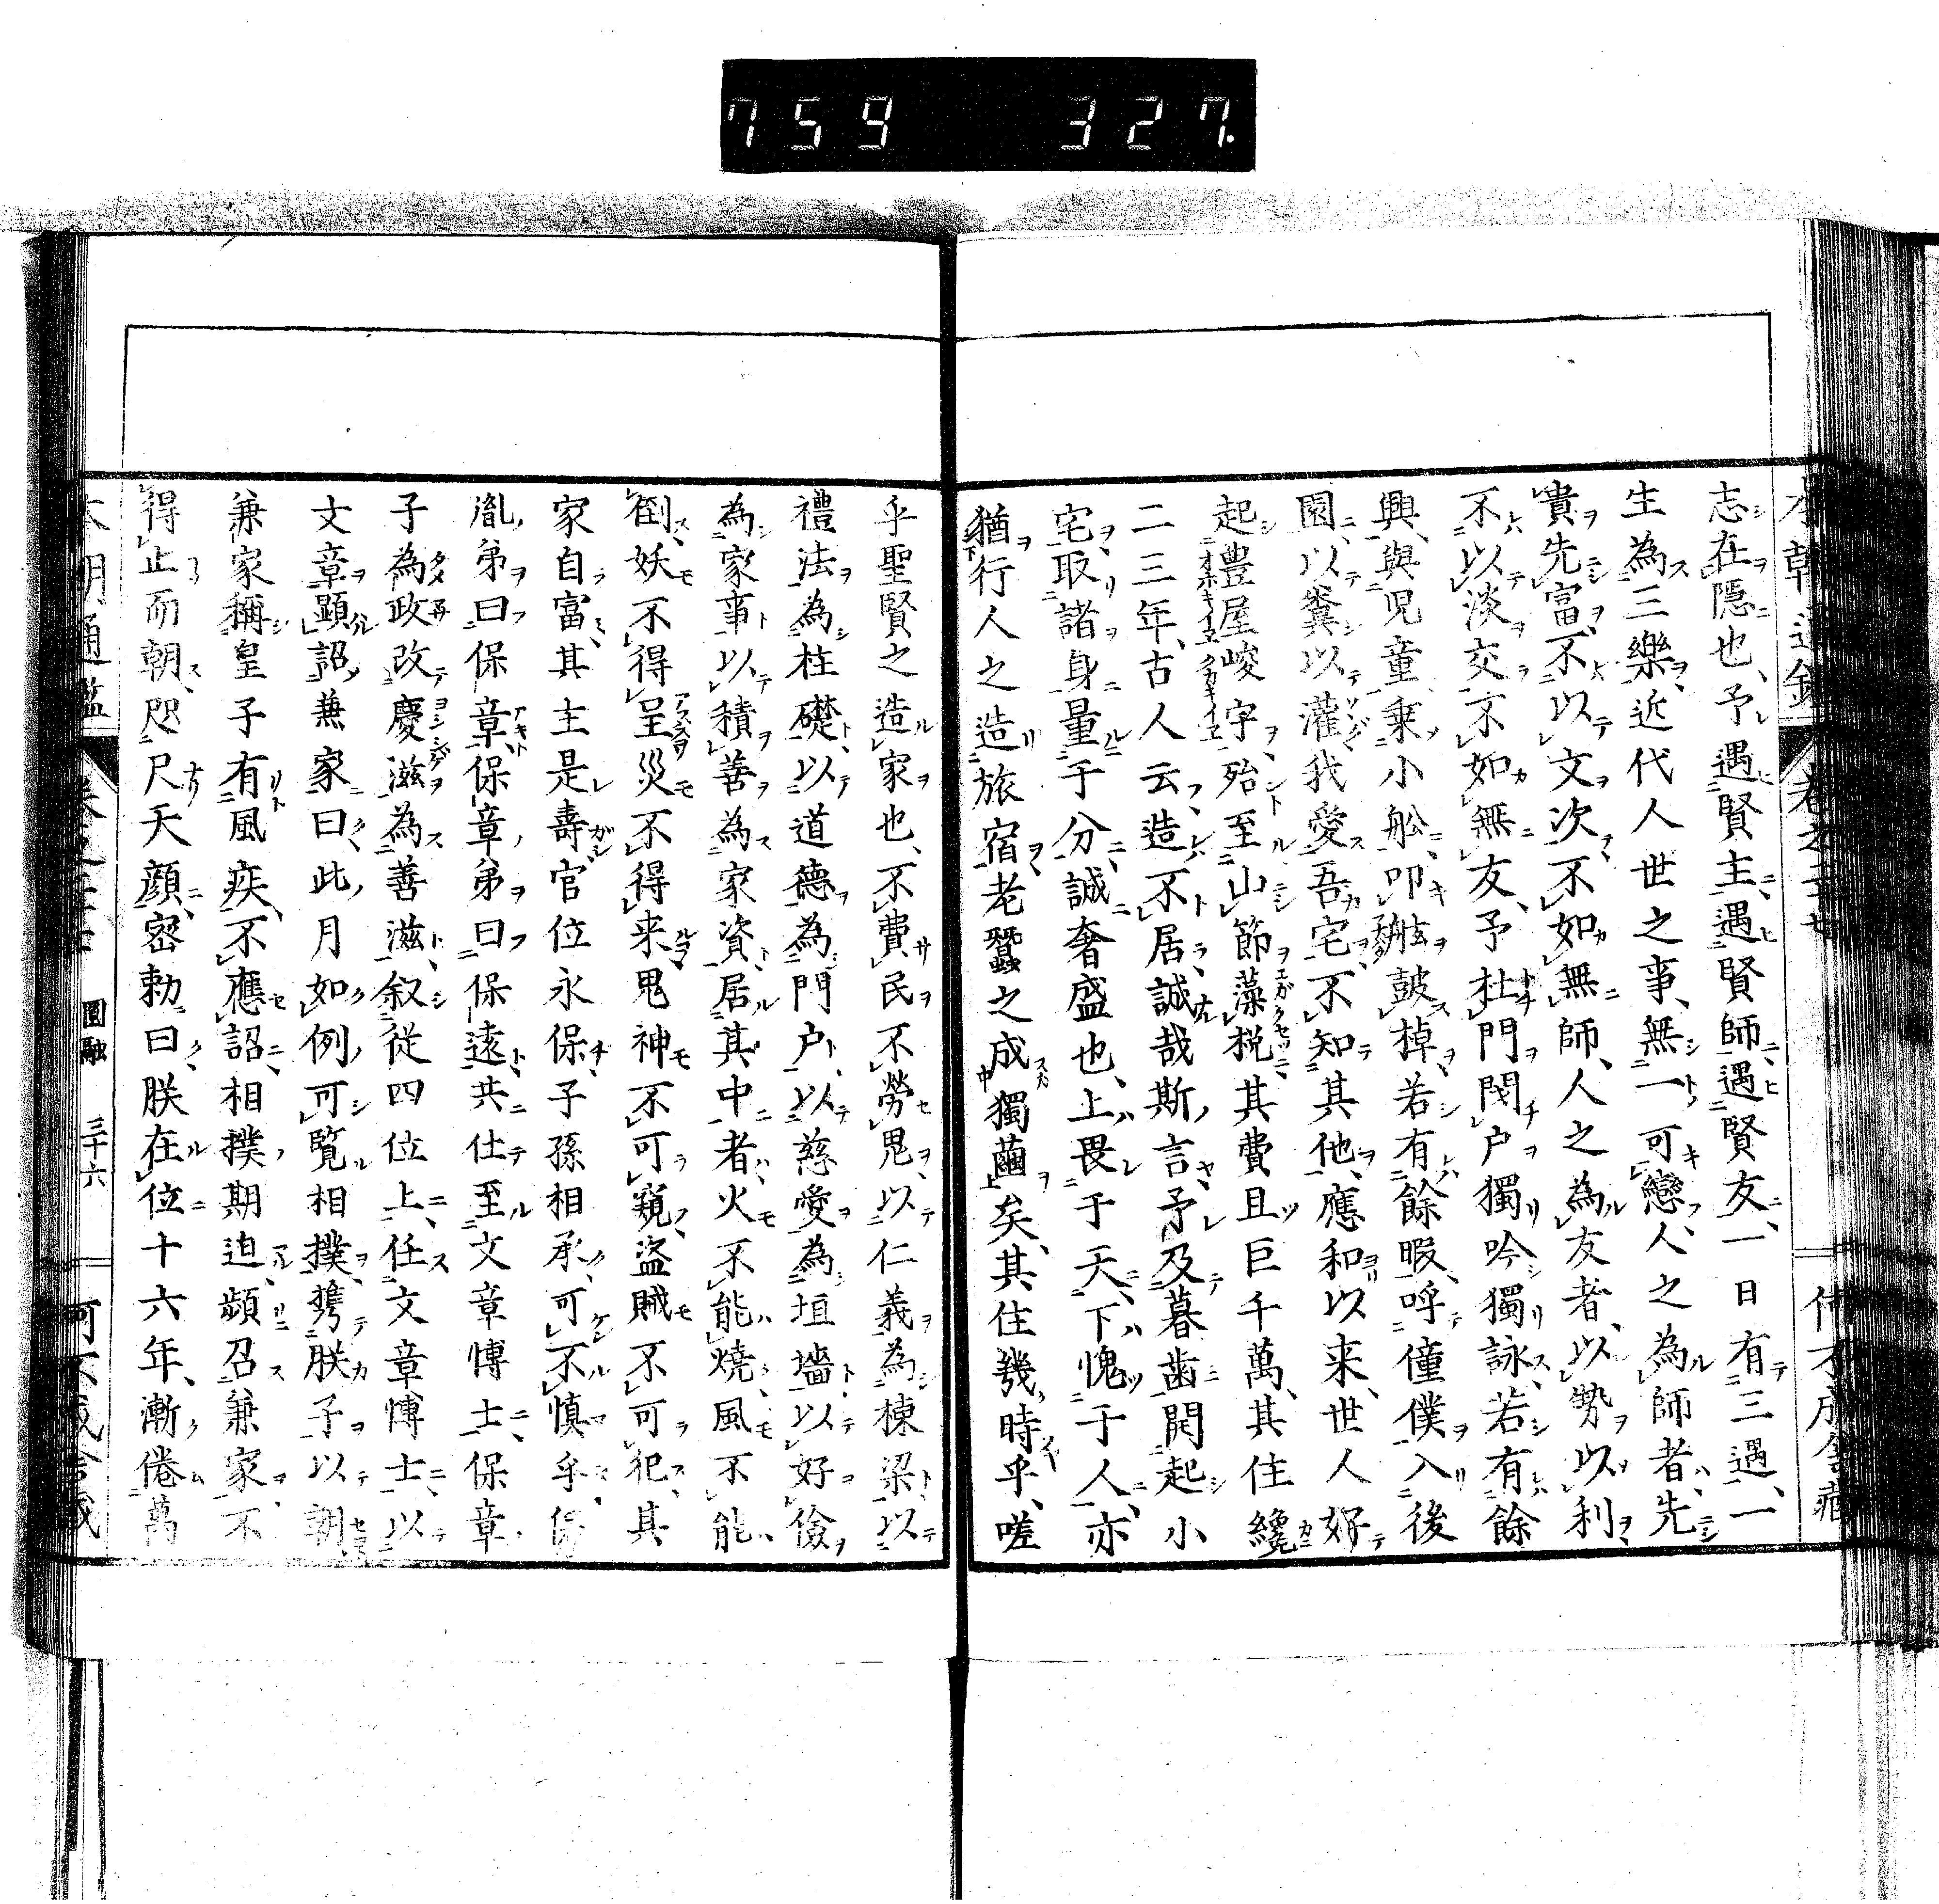 759 327.
志在隱也、予遇賢主、遇賢師、遇賢友、一日有三遇、一
生為三樂、近代人世之事、無一可戀、人之為師者、先
貴先富、不以文次、不如無師、人之為友者、以勢以利
不以淡交、不如無友、予杜門閉户獨吟獨詠、若有餘
興、與児童乗小舩、叩舷鼓棹、若有餘暇、呼僮僕入後
園、以糞以灌、我愛吾宅、不知其他、應和以来、世人好
起豊屋峻宇、殆至山節藻梲、其費且巨千萬、其住纔
二三年、古人云、造不居、誠哉斯言、予及暮歯開起小
宅、取諸身量于分、誠奢盛也、上畏于天、下愧于人、亦
猶行人之造旅宿、老蠶之成獨繭矣、其住幾時乎、嗟
乎聖賢之造家也、不費民不勞鬼、以仁義為棟梁、以
禮法為柱礎、以道德為門户、以慈愛為垣墻、以好儉
為家事、以積善為家資、居其中者、火不能燒、風不能
倒、妖不得呈、災不得来、鬼神不可窺、盗賊不可犯、其
家自富、其主是壽、官位永保、子孫相承、可不慎乎、
胤、弟曰保章、保章弟曰保遠、共仕至文章博士、保章
子為政、改慶滋為善滋、叙従四位上、任文章博士、以
文章顕、詔兼家曰、此月如例、可覧相撲、携朕子以朝、
兼家稱皇子有風疾、不應詔、相撲期迫、頻召兼家、不
得止而朝、咫尺天顔、密勅曰、朕在位十六年、漸倦萬
圓融 三十六